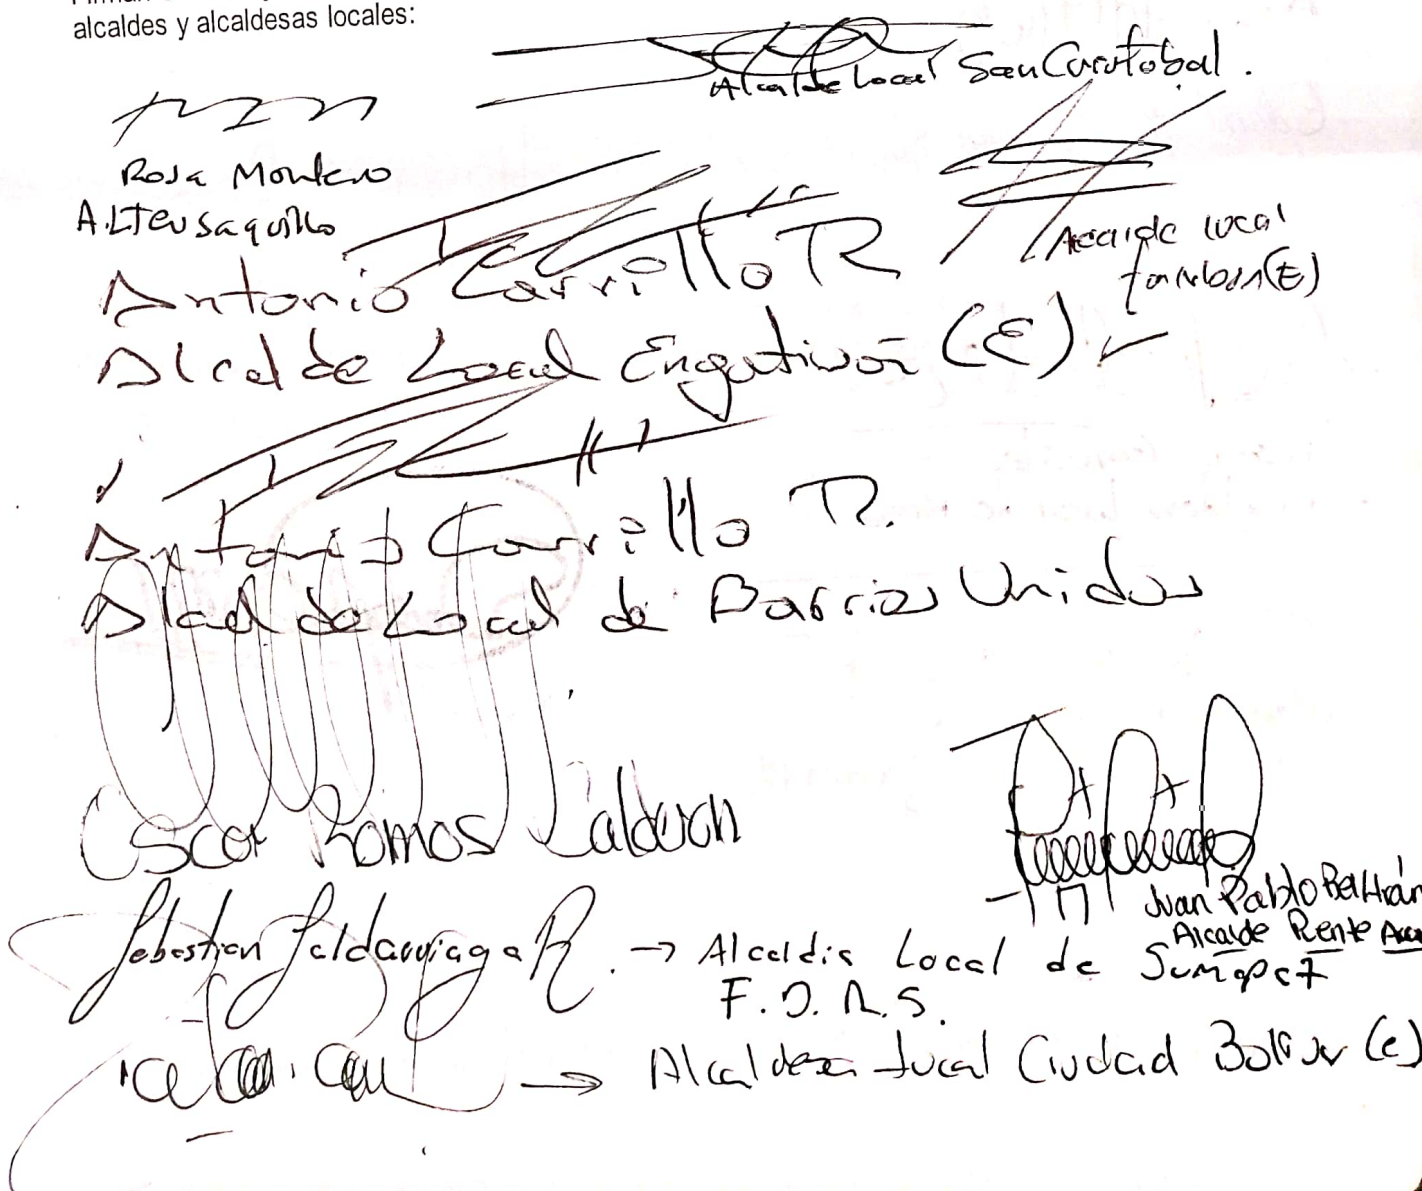 alcaldes y alcaldesas locales:
Alcalde Local San Cristobal.
Rosa Montero
A.L Teusaquillo
Alcalde local
(E)
Antonio Carrillo R
Alcalde Local Engativá (E)
Antonio Carrillo R.
Alcalde Local de Barrios Unidos
Oscar Ramos Calderon
Juan Pablo Beltrán
Alcalde
Sebastian Saldarriaga R. → Alcaldia Local de Sumapaz
F. D. R. S.
→ Alcaldesa Local Ciudad Bolivar (e)